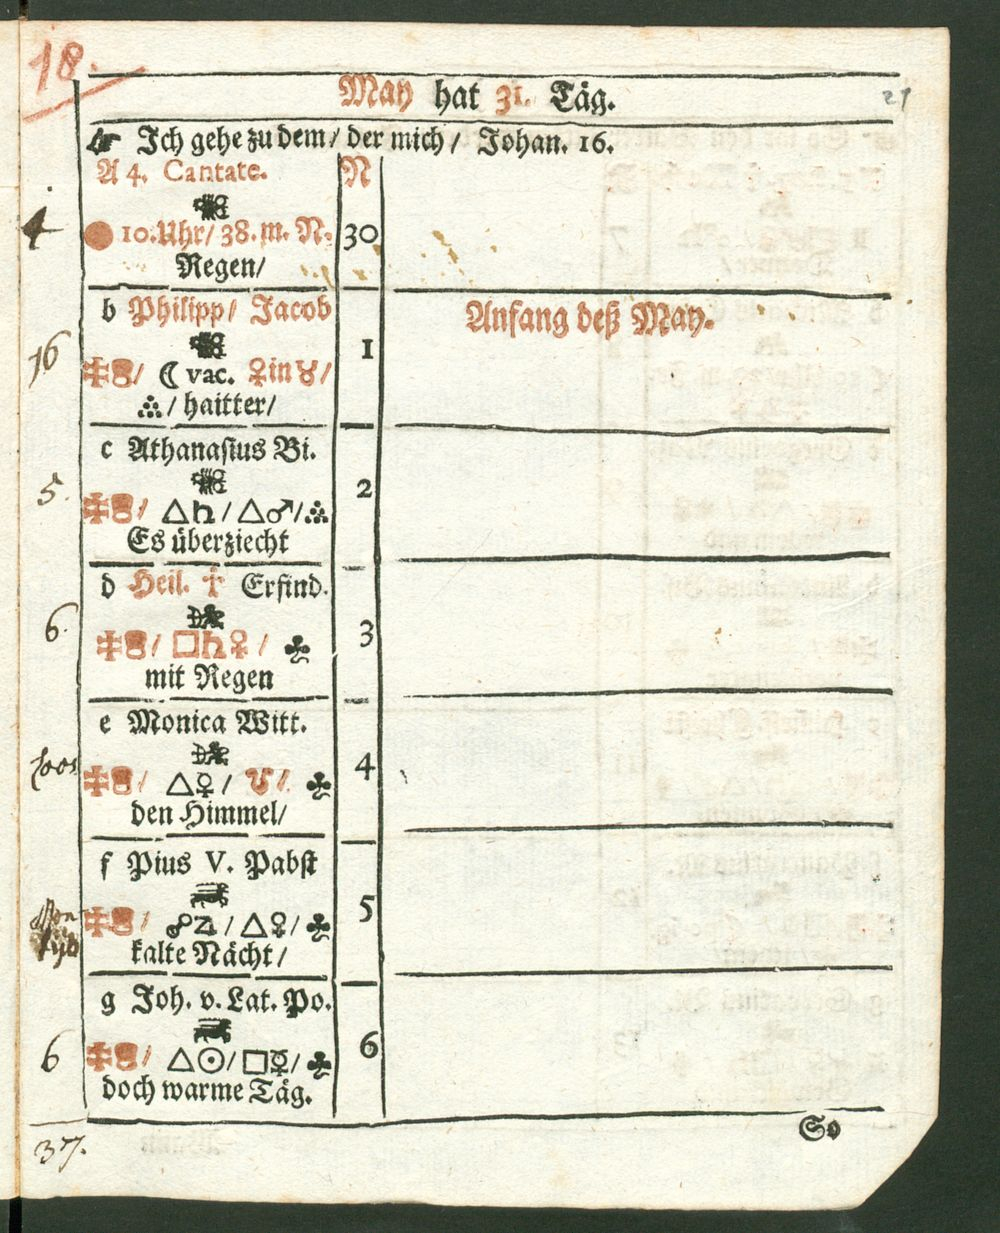 18.
May hat 31. Täg.
21
☞ Ich gehe zu dem/ der mich/ Johan. 16.
A 4. Cantate.
N
4
10. Uhr/ 38. m. N.
30
Regen/
b Philipp/ Jacob
Anfang deß May.
16
1
/ ☾ vac. ♀ in ♉/
/ haitter/
c Athanasius Bi.
5.
2
/ △♄/△♂/
Es überziecht
d Heil. ☩ Erfind.
6.
3
/ □♄♀/ ♣
mit Regen
e Monica Witt.
4
/ △♀/ ♉/ ♣
den Himmel/
f Pius V. Pabst
5
/ ☍♃/△♀/♣
kalte Nächt/
g Joh. v. Lat. Po.
6
6
/ △☉/□☿/♣
doch warme Täg.
So
37.